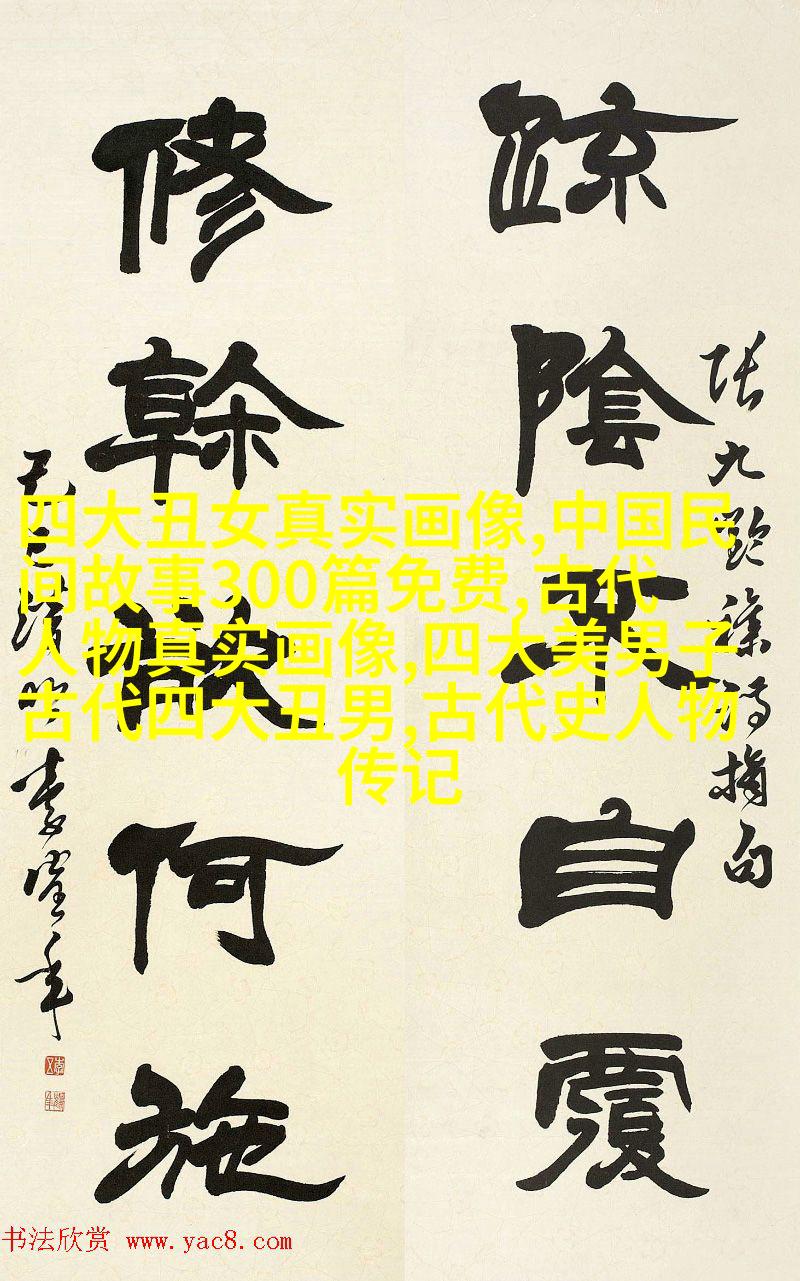 疎陰不自覆
張九齡雜詩摘句
修榦欲何施
四大丑女真实画像,中国民
间故事300篇免费,古代
人物真实画像,四大美男子
古代四大丑男,古代史人物
传记
书法欣赏 www.yac8.com